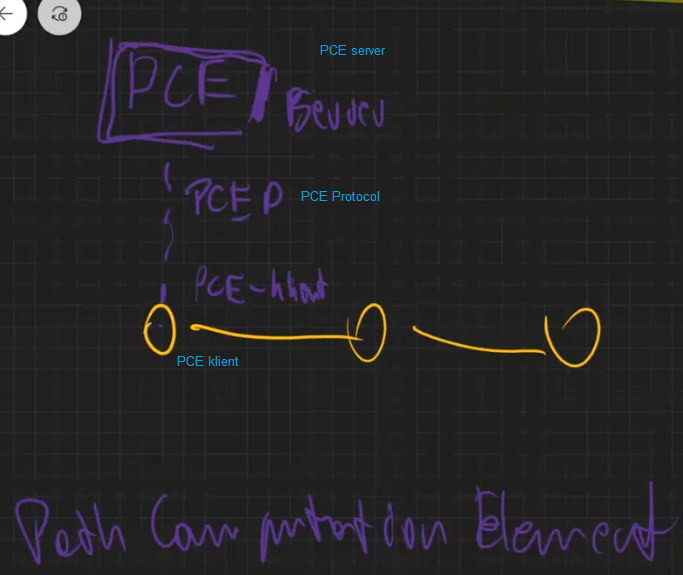 PCE server
PCE
PCEP PCE Protocol
PCE-klient
PCE klient
Path Computation Element